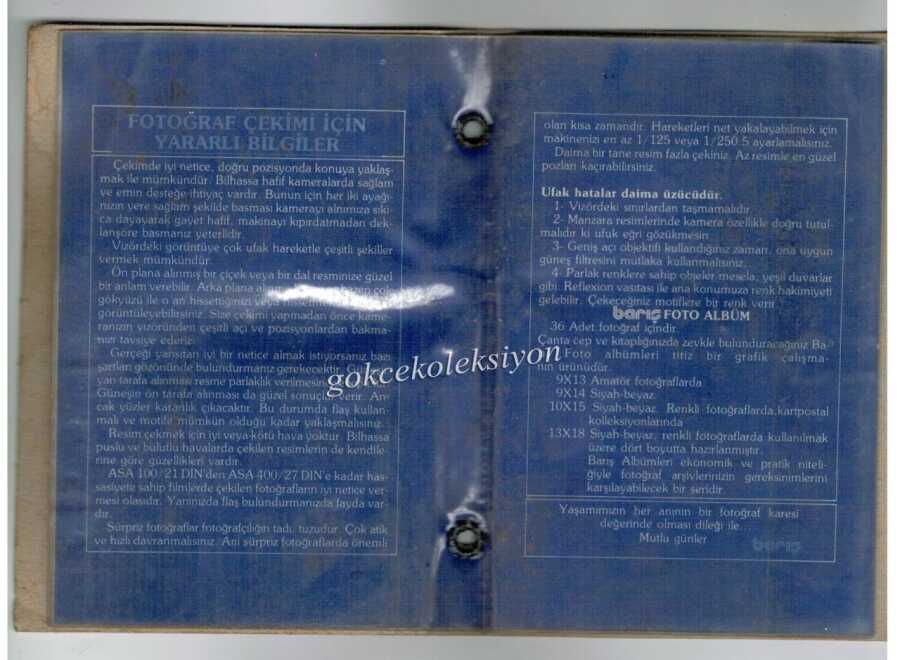 FOTOĞRAF ÇEKİMİ İÇİN
YARARLI BİLGİLER
Çekimde iyi netice, doğru pozisyonda konuya yaklaş-
mak ile mümkündür. Bilhassa hafif kameralarda sağlam
ve emin desteğe ihtiyaç vardır. Bunun için her iki ayağı-
nızın yere sağlam şekilde basması kamerayı alnımıza sıkı-
ca dayayarak gayet hafif, makinayı kıpırdatmadan dek-
lanşöre basmanız yeterlidir.
Vizördeki görüntüye çok ufak hareketle çeşitli şekiller
vermek mümkündür.
Ön plana alınmış bir çiçek veya bir dal resminize güzel
bir anlam verebilir. Arka plana çok
gökyüzü ile o an hissettiğinizi veya
görüntüleyebilirsiniz. Size çekimi yapmadan önce kame-
ranızın vizöründen çeşitli açı ve pozisyonlardan bakma-
nızı tavsiye ederiz.
Gerçeği yansıtan iyi bir netice almak istiyorsanız bazı
şartları gözönünde bulundurmanız gerekecektir.
yan tarafa alınması resme parlaklık verilmesini
Güneşin ön tarafa alınması da güzel sonuçlar verir. An-
cak yüzler karanlık çıkacaktır. Bu durumda flaş kullan-
malı ve motife mümkün olduğu kadar yaklaşmalısınız.
Resim çekmek için iyi veya kötü hava yoktur. Bilhassa
puslu ve bulutlu havalarda çekilen resimlerin de kendile-
rine göre güzellikleri vardır.
ASA 100/21 DIN'den ASA 400/27 DIN'e kadar has-
sasiyete sahip filmlerde çekilen fotoğrafların iyi netice ver-
mesi olasıdır. Yanınızda flaş bulundurmanızda fayda var-
dır.
Sürpriz fotoğraflar fotoğrafçılığın tadı, tuzudur. Çok atik
ve hızlı davranmalısınız. Ani sürpriz fotoğraflarda önemli
olan kısa zamandır. Hareketleri net yakalayabilmek için
makinenizi en az 1/125 veya 1/250.5 ayarlamalısınız.
Daima bir tane resim fazla çekiniz. Az resimle en güzel
pozları kaçırabilirsiniz.
Ufak hatalar daima üzücüdür.
1- Vizördeki sınırlardan taşmamalıdır.
2- Manzara resimlerinde kamera özellikle doğru tutul-
malıdır ki ufuk eğri gözükmesin.
3- Geniş açı objektifi kullandığınız zaman, ona uygun
güneş filtresini mutlaka kullanmalısınız.
4- Parlak renklere sahip objeler mesela, yeşil duvarlar
gibi. Reflexion vasıtası ile ana konumuza renk hakimiyeti
gelebilir. Çekeceğiniz motiflere bir renk verir.
barış FOTO ALBÜM
36 Adet fotoğraf içindir.
Çanta cep ve kitaplığınızda zevkle bulunduracağınız Ba-
Foto albümleri titiz bir grafik çalışma-
nın ürünüdür.
9X13 Amatör fotoğraflarda
9X14 Siyah-beyaz.
10X15 Siyah-beyaz. Renkli fotoğraflarda,kartpostal
kolleksiyonlarında
13X18 Siyah-beyaz, renkli fotoğraflarda kullanılmak
üzere dört boyutta hazırlanmıştır.
Barış Albümleri ekonomik ve pratik niteli-
ğiyle fotoğraf arşivlerinizin gereksinimlerini
karşılayabilecek bir seridir.
Yaşamımızın her anının bir fotoğraf karesi
değerinde olması dileği ile...
Mutlu günler
barış
gokcekoleksiyon